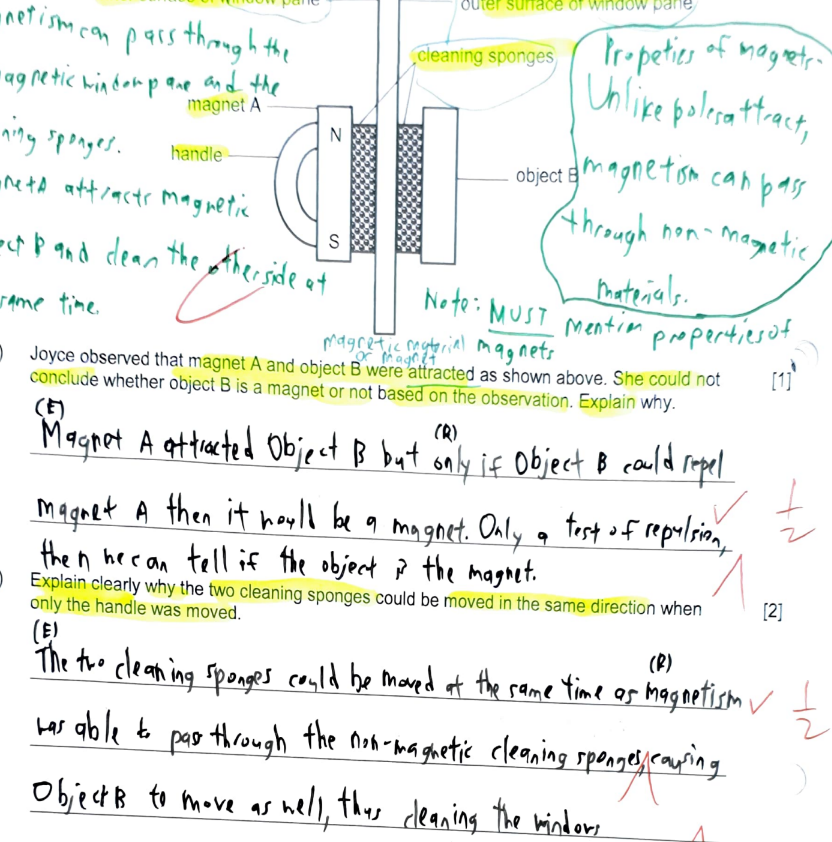 outer surface of window pane
can pass through the
window pane and the
sponges.
attracts magnetic
and clean the other side at
same time.
cleaning sponges
magnet A
handle
N
S
object B
Propeties of magnets.
Unlike poles attract,
magnetism can pass
through non-magnetic
materials.
Note: MUST mention properties of
magnets
magnetic material
or magnet
Joyce observed that magnet A and object B were attracted as shown above. She could not [1]
conclude whether object B is a magnet or not based on the observation. Explain why.
(E) (R)
Magnet A attracted Object B but only if Object B could repel
magnet A then it would be a magnet. Only a test of repulsion,
then he can tell if the object is the magnet.
1/2
Explain clearly why the two cleaning sponges could be moved in the same direction when [2]
only the handle was moved.
(E) (R)
The two cleaning sponges could be moved at the same time as magnetism
1/2
was able to pass through the non-magnetic cleaning sponges, causing
Object B to move as well, thus cleaning the windows